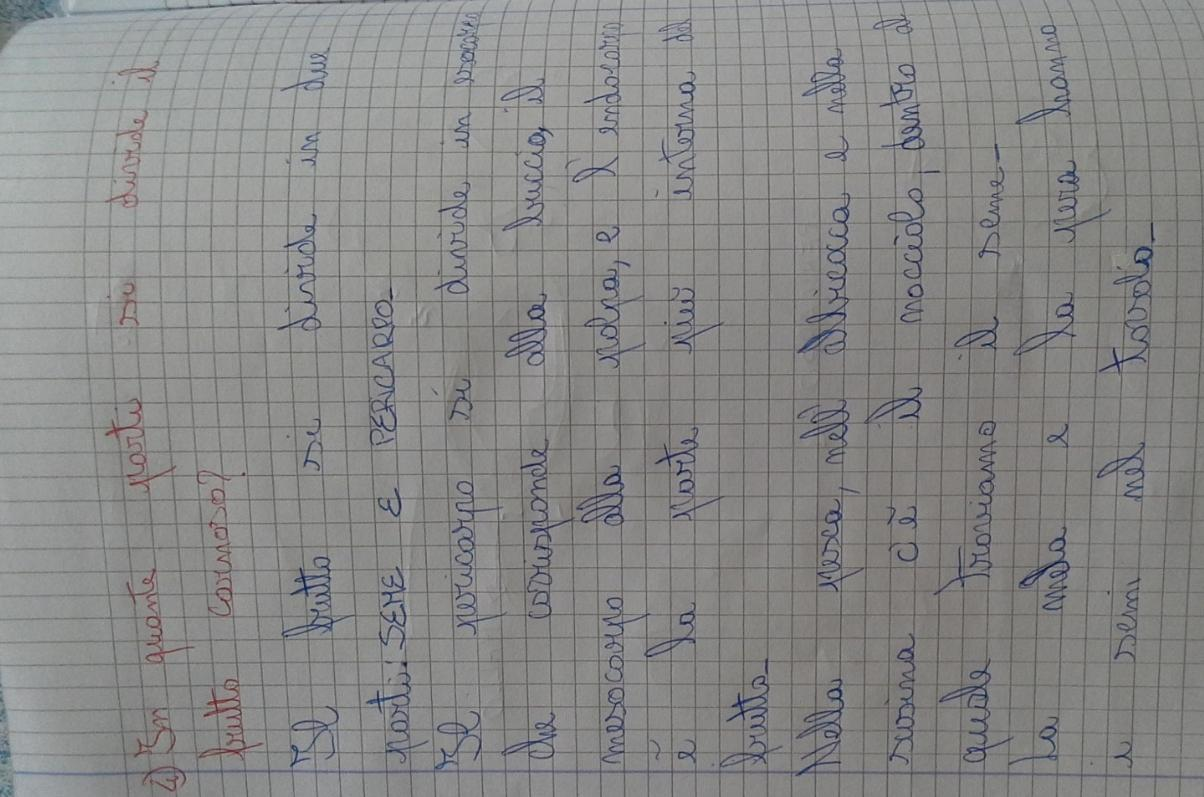 4) In quante parti si divide il
frutto carnoso?
Il frutto si divide in due
parti: SEME E PERICARPO_
Il pericarpo si divide in esocarpo
che corrisponde alla buccia, il
mesocarpo alla polpa, e l'endocarpo
è la parte più interna del
frutto_
Nella pesca, nell'albicocca e nella
susina c'è il nocciolo, dentro al
quale troviamo il seme_
La mela e la pera hanno
i semi nel torsolo_